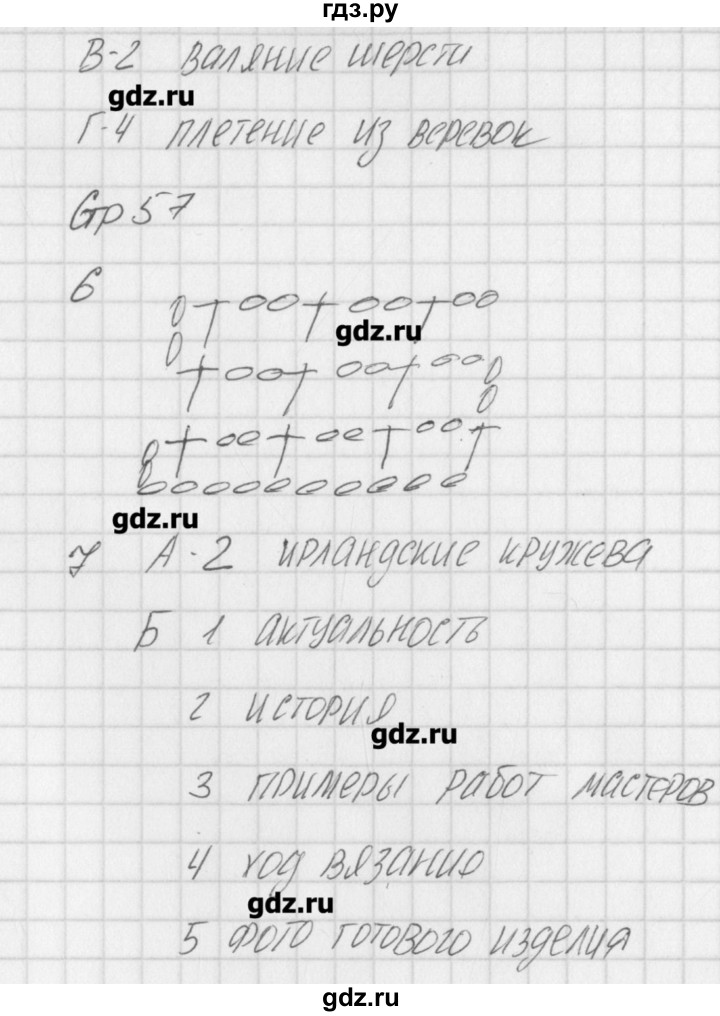 гдз.ру
В-2 валяние шерсти
gdz.ru
Г-4 плетение из веревок
Стр 57
6
gdz.ru
gdz.ru
7 А-2 ирландские кружева
Б 1 актуальность
2 история
gdz.ru
3 примеры работ мастеров
4 ход вязания
gdz.ru
5 фото готового изделия
gdz.ru